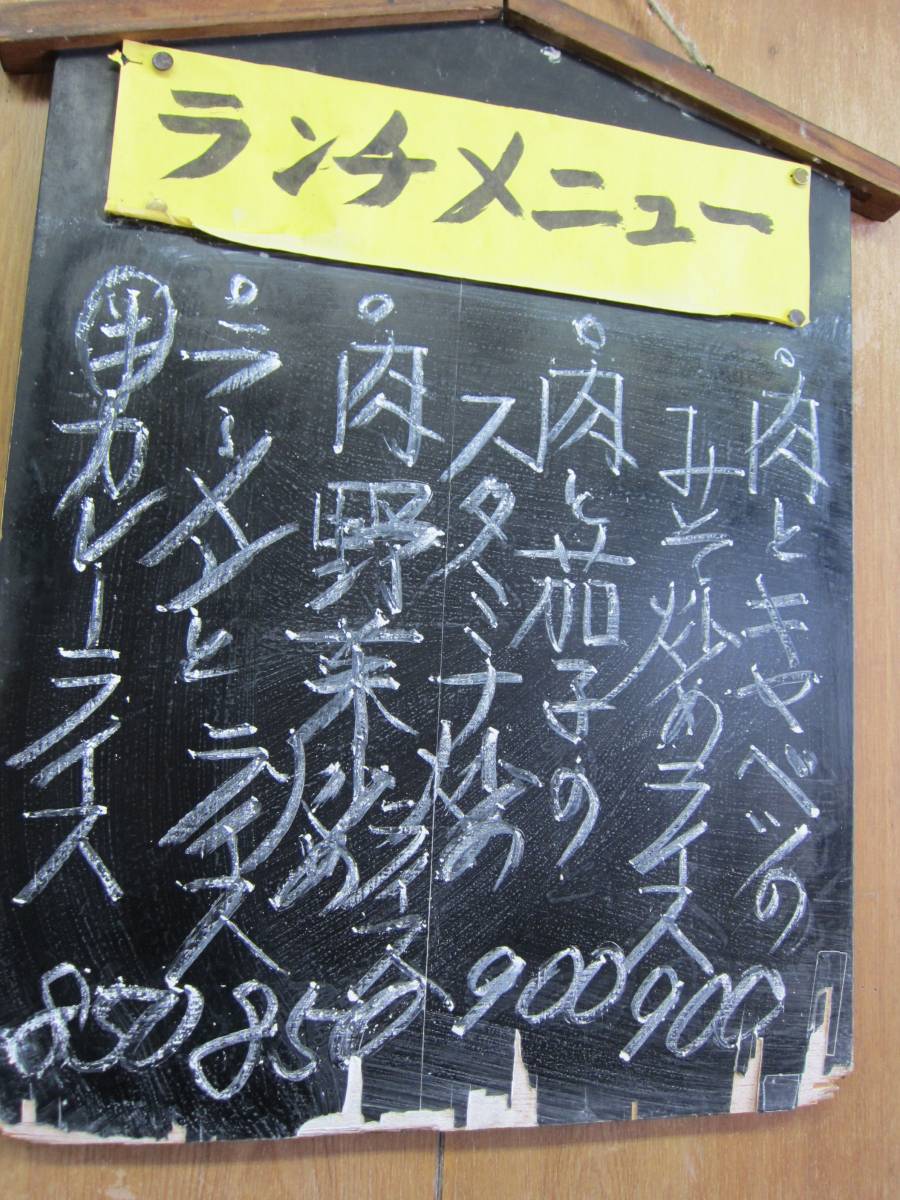 ランチメニュー
肉とキャベツの
みそ炒めライス 900
肉と茄子の
スタミナ炒め 900
肉野菜炒め
ライス 850
ラーメンとライス
半カレーライス 850